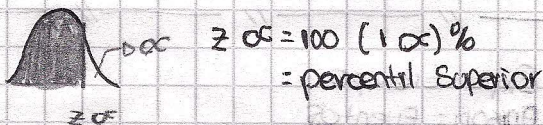 α
z α = 100 (1 α) %
= percentil Superior
z α